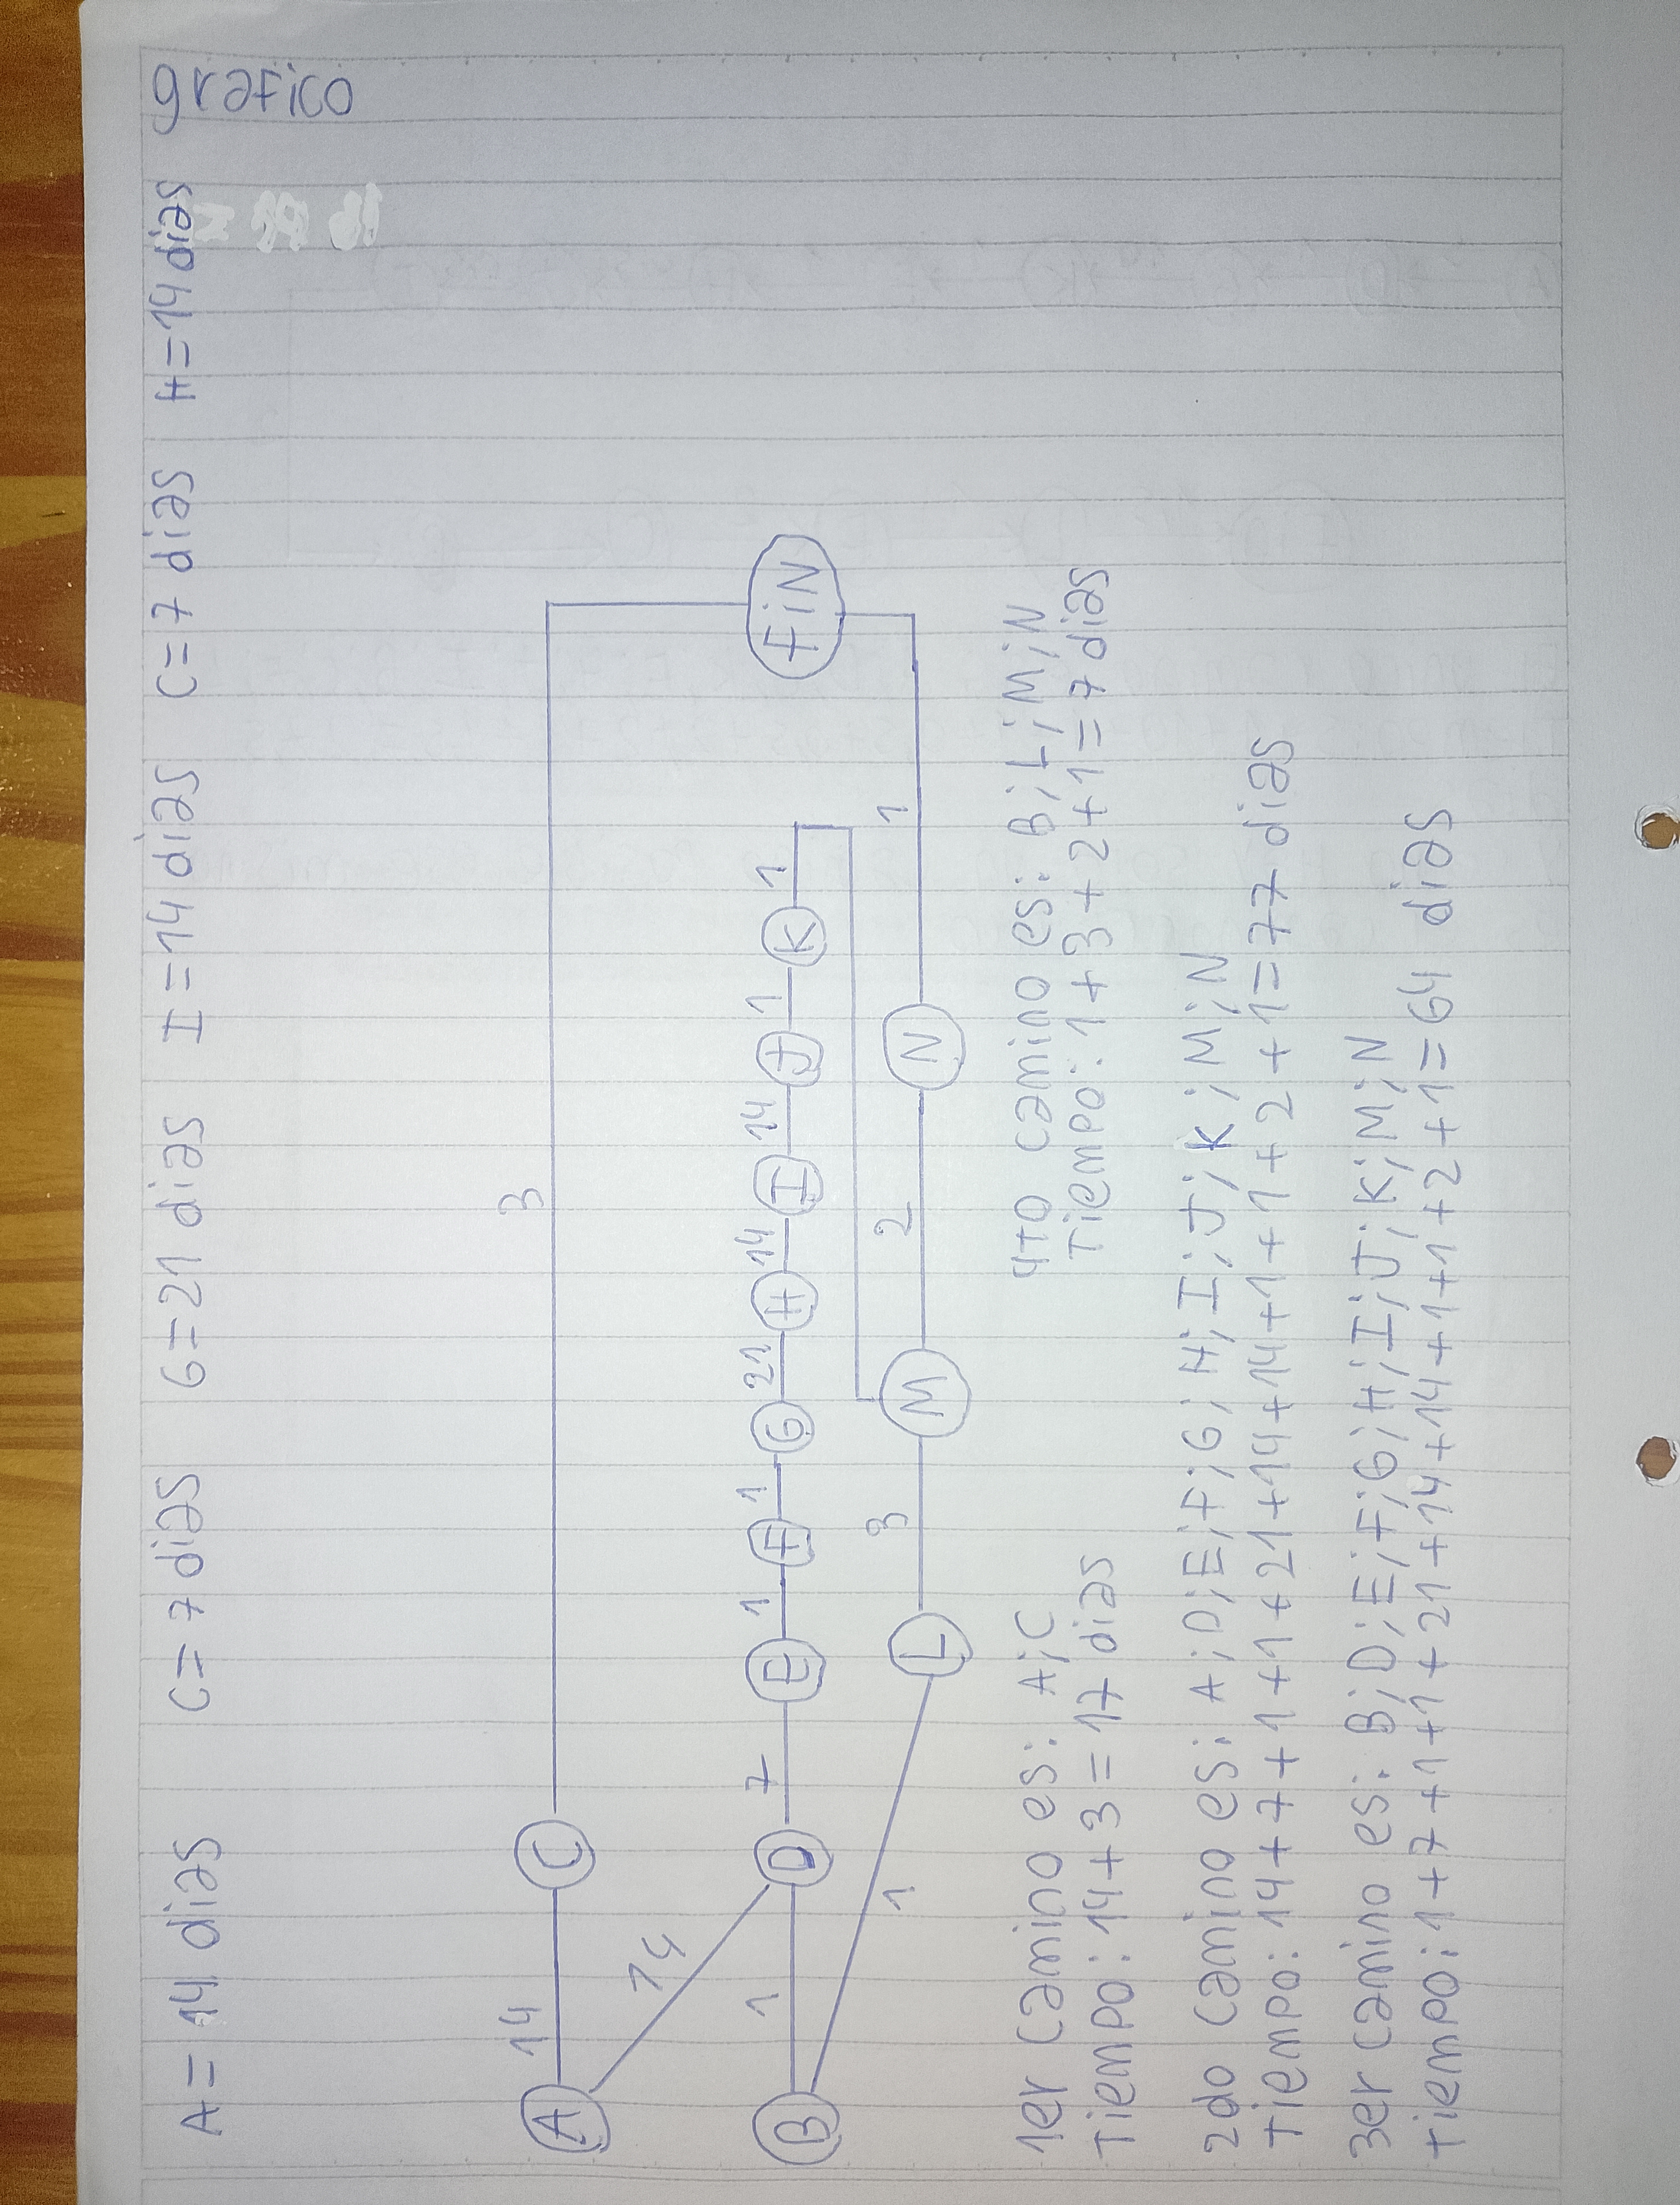 A = 14 dias C = 7 dias G = 21 dias I = 14 dias C = 7 dias H = 14 dias grafico
3
A 14 C
14
B 1 D 7 E 1 F 1 G 21 H 14 I 14 J 1 K 1 FiN
1 L 3 M 2 N 1
1er camino es: A;C
Tiempo: 14+3 = 17 dias
4to camino es: B;L;M;N
Tiempo: 1+3+2+1= 7 dias
2do camino es: A;D;E;F;G;H;I;J;K;M;N
Tiempo: 14+7+1+1+21+14+14+1+1+2+1= 77 dias
3er camino es: B;D;E;F;G;H;I;J;K;M;N
Tiempo: 1+7+1+1+21+14+14+1+1+2+1= 64 dias